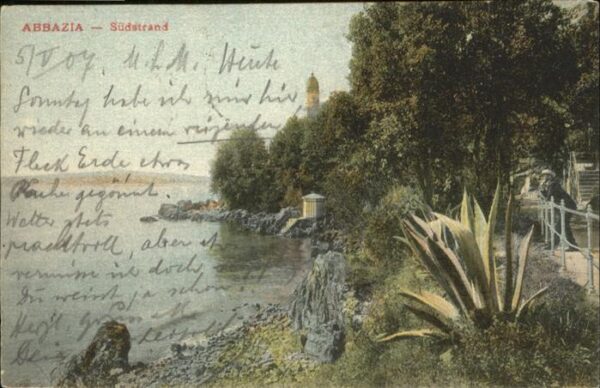 ABBAZIA — Südstrand
5/V 07. M. L. M. Heute
Sonntag habe ich mir hier
wieder an einem reizenden
Fleck Erde etwas
Ruhe gegönnt.
Wetter stets
prachtvoll, aber et
vermisse ich doch,
Du weisst ja schon
Herzl.